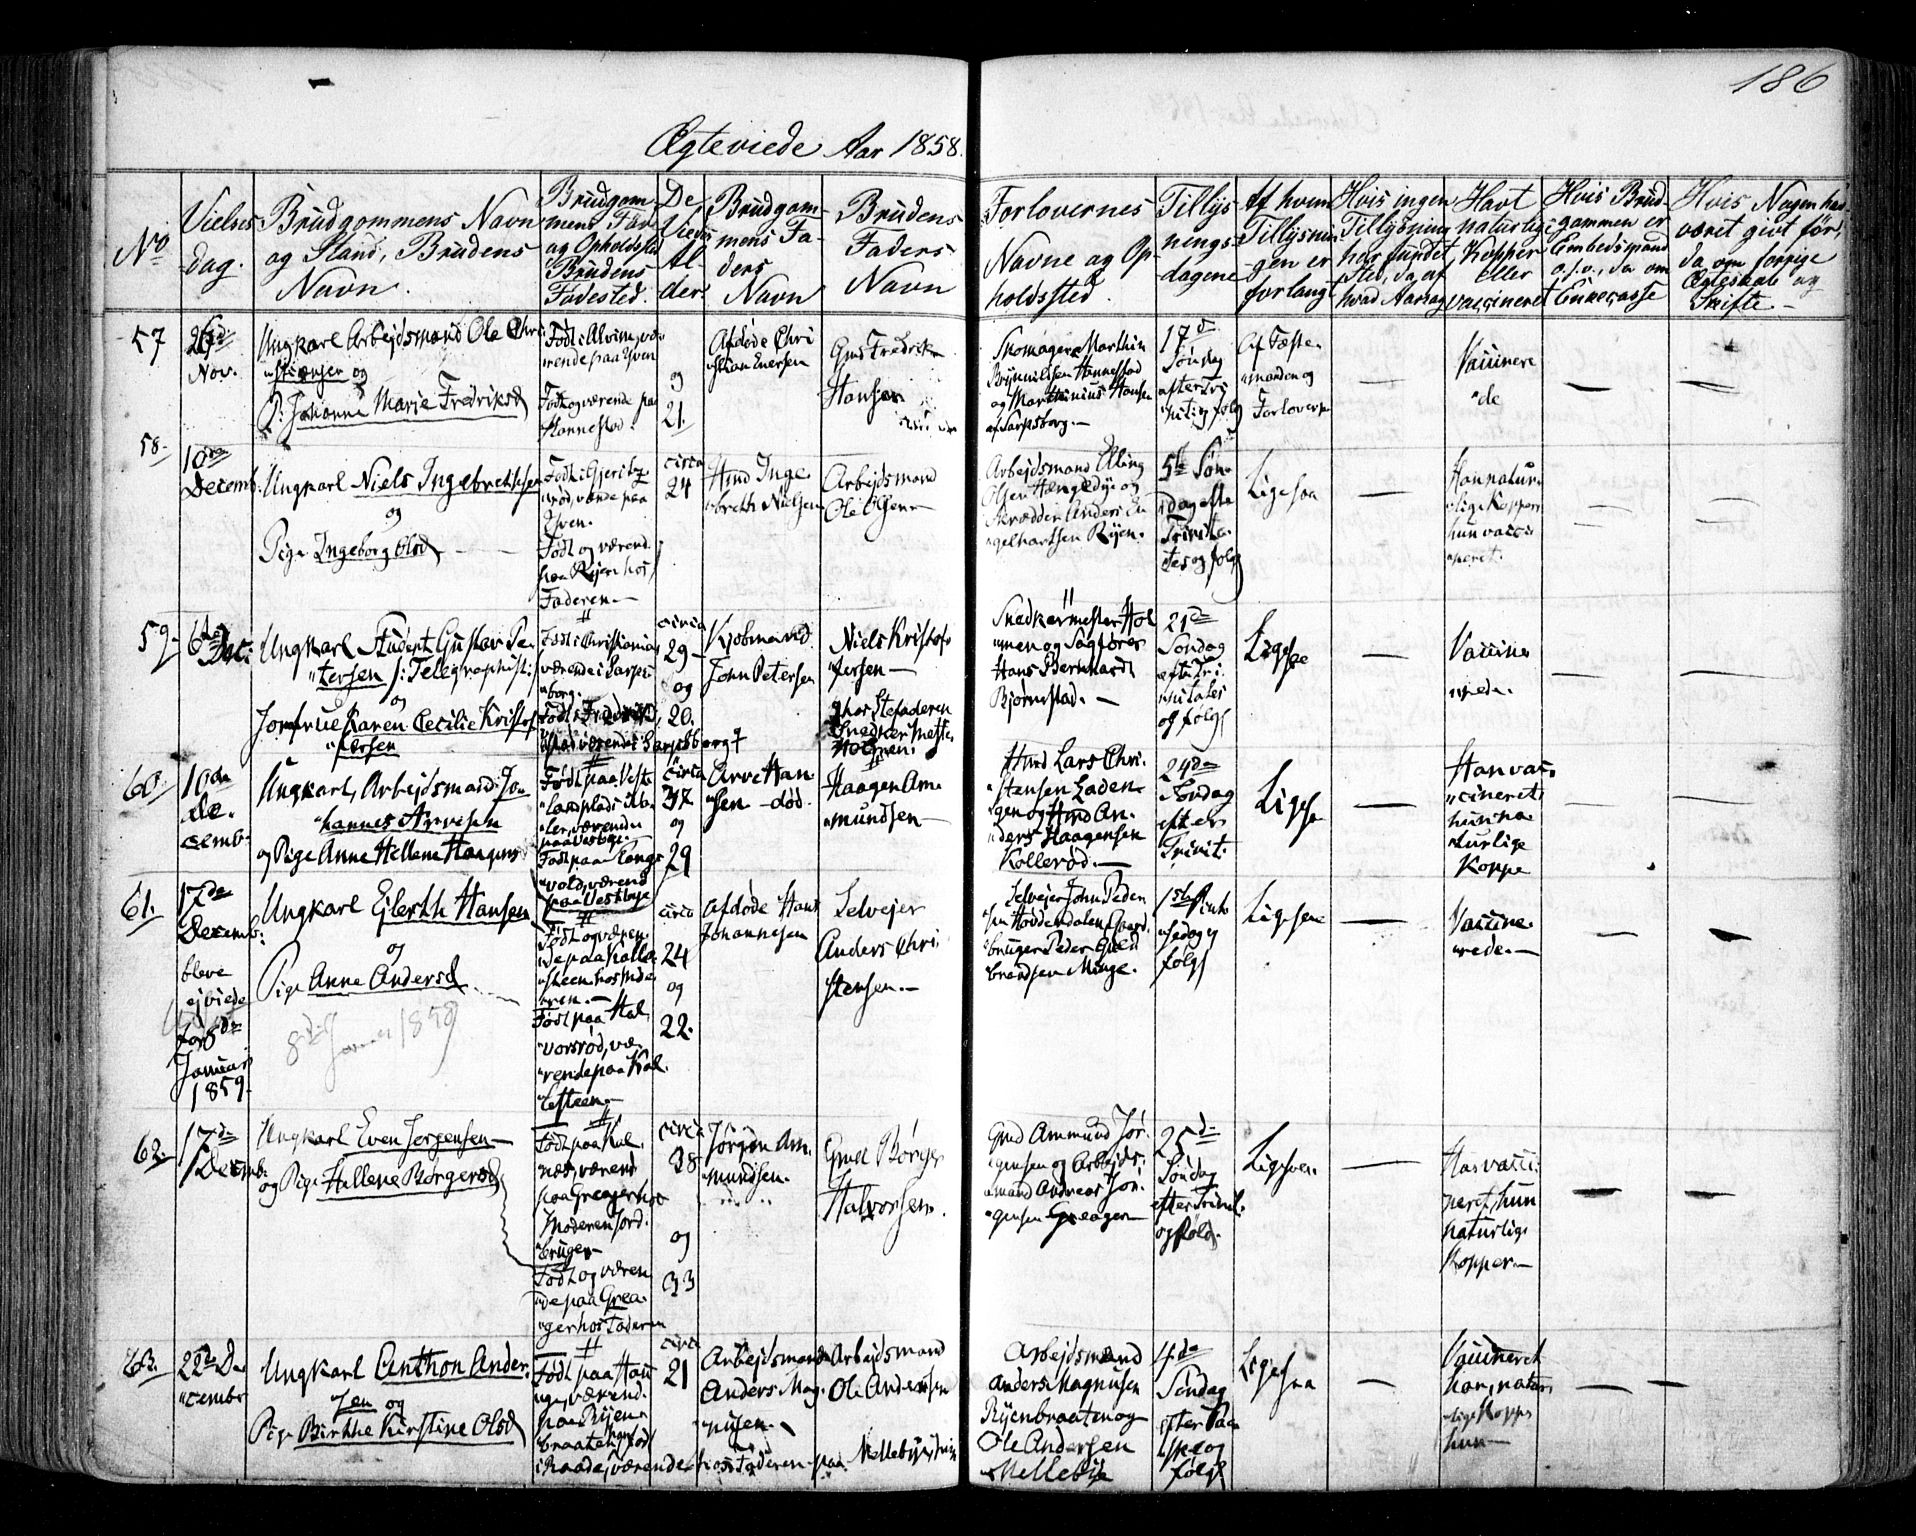 186
Ægteviede Aar 1858.
No
Vielses
dag.
Brudgommens Navn
og Stand, Brudens
Navn.
Brudgom-
mens Føde
og Opholdsted
Brudens
Fødested.
De
Viedes
Al-
der.
Brudgom-
mens Fa-
ders
Navn
Brudens
Faders
Navn
Forlovernes
Navne og Op-
holdssted.
Tillys
nings-
dagene
Af hvem
Tillysnin
gen er
forlangt
Hvis ingen
Tillysning
har fundet
Sted, da af
hvad Aarsag
Havt
naturlige
Kopper
eller
vaccineret
Hvis Brud-
gommen er
Embedsmand
o.s.v., da om
Enkecasse
Hvis Nogen har
været givt før,
da om forrige
Ægteskab og
Skifte
57
26de
Nov.
Ungkarl Arbejdsmand Ole Chri
og
P: Johanne Marie Fredriksd
Født og værende paa
Hannestad
og
21.
Afdøde Chri
stian Eversen
Gmd Fredrik
Hansen
Skomager Marthin
Brynnildsen Hannestad
og Marthinius Hansen
af Sarpsborg.
17de
Søndag
efter Tri
nit. og følg
Af Fæste
manden og
Forloverne
Vaccinere
de
58.
10de
Decemb.
Ungkarl Niels Ingebrethsen
og
Pige Ingeborg Olsd
værende paa
Yven.
Født og værend
paa Ryen hos
Faderen.
circa
24
Hmd Inge
breth Nielsen
Arbejdsmand
Ole Olsen
Arbejdsmand Elling
Olsen Hængedye og
Skrædder Anders En
gelhartsen Ryen.
5te Søn
dag efter
Trinita
tes og følg
Ligesaa
Han natur
lige Kopper
hun vacci
neret.
59
6te
Dec:
Ungkarl Student Gustav Pe
tersen /: Telegraphist :/
og
Jomfrue Karen Cecilie Kristof
fersen
Født i Christiania
værende i Sarps
borg.
circa
29
og
20.
Kjøbmand
John Petersen
Niels Kristof
fersen
hos Stefaderen
Snedkermester
Holmen.
Snedkermester Hol
men og Sagfører
Hans Bernhard
Bjørnstad.
21de
Søndag
efter Tri
nitates
og følg
Ligesaa
Vaccine
rede.
60.
10de
De
cemb.
Ungkarl, Arbejdsmand Jo
hannes Arvesen
og Pige Anne Hellene Haagens
circa
37
og
29
Arve Han
sen død
Haagen Am
mundsen
Hmd Lars Chri
stensen Laden
gen og Hmd An
ders Haagensen
Kollerød.
24de
Søndag
efter
Trinit.
Ligesaa
Han vac
cineret
hun na
turlige
Koppe
61.
17de
Decemb:
bleve
ej viede
før 8de
Januar
1859.
Ungkarl Ejlerth Hansen
og
Pige Anne Andersd
8de Januar 1859
Født og væren
de paa Kalle
steen hos Mode
ren.
Født paa Hal
vorsrød, væ
rende paa Kal
lesteen
circa
24
og
22.
Afdøde Hans
Johannesen
Selvejer
Anders Chri
stensen.
Selvejer John Peder
sen Hoddendalen Gaard
bruger Peder Guld
brandsen Minge.
og
følg
Ligesaa
Vaccine
rede.
62.
17de
Decemb:
Ungkarl Even Jørgensen
og Pige Hellene Børgersd
Født paa Kal
næs, værend
paa Greager hos
Moderen Jord
bruger
Født og væren
de paa Grea
ger hos Faderen
circa
38
og
33
Jørgen Am
mundsen
Gmd Børger
Halvorsen.
Gmd Ammund Jør
gensen og Arbejds
mand Andreas Jør
gensen Greager
25de
Søndag
efter Trinit.
og følg.
Ligesaa
Han vacci
neret, hun
naturlige
Kopper
63.
22de De
cembr
Ungkarl Anthon Ander
sen og
Pige Birthe Kirstine Olsd
Født paa Hau
ge, værend
paa Ryen
braaten, født
i Raade, værende hos Faderen paa Mellebye
circa
21
Arbejdsmand
Anders Mag
nusen
Arbejdsmand
Ole Andersen
Arbejdsmand
Anders Magnusen
Ryenbraaten og
Ole Andersen
Mellebye
4de
Søndag
efter Paa
ske og
følg
Ligesaa
Vaccineret
han, natur
lige Kopper
hun